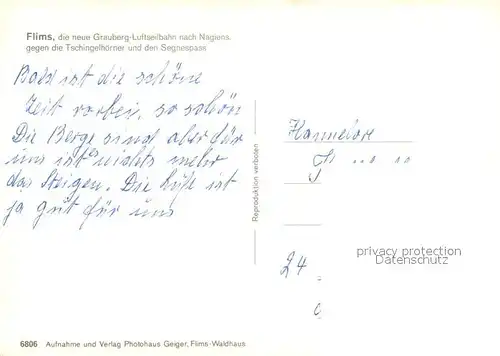 Flims, die neue Grauberg-Luftseilbahn nach Nagiens,
gegen die Tschingelhörner und den Segnespass
Bald ist die schöne
Zeit vorbei, so schön
Die Berge sind aber für
uns ist es nichts mehr
das Steigen. Die Luft ist
ja gut für uns
Hannelore
Reproduktion verboten
24
privacy protection
Datenschutz
6806 Aufnahme und Verlag Photohaus Geiger, Flims-Waldhaus